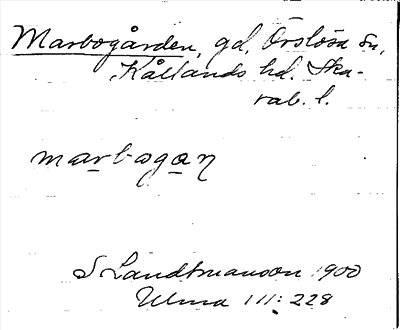 Marbogården, gd, Örslösa sn,
Kållands hd. Ska-
rab. l.
marbogan
S Landtmanson 1900
Ulma 111: 228